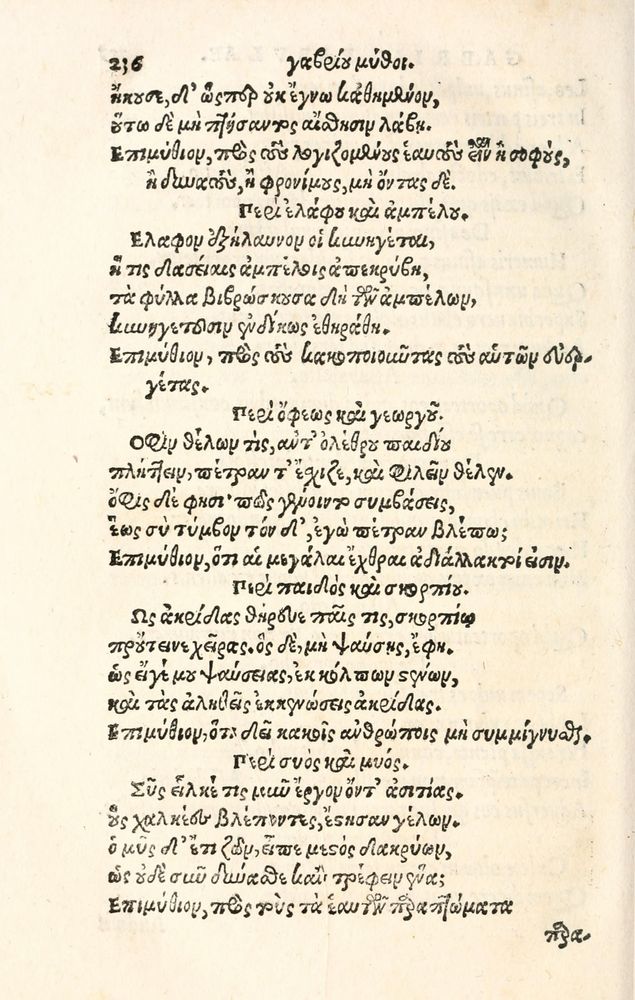 236 γαβρίου μῦθοι.
ἤκουσε, δ’ ὥσπερ οὐκ ἔγνω καθημένον,
οὕτω δὲ μὴ πτήσαντος αἴσθησιν λάβῃ.
Επιμύθιον, πρὸς τοὺς λογιζομένους ἑαυτοὺς εἶναι ἢ σοφοὺς,
ἢ δυνατοὺς, ἢ φρονίμους, μὴ ὄντας δέ.
Περὶ ἐλάφου καὶ ἀμπέλου.
Ελαφον ἐξήλαυνον οἱ κυνηγέται,
ἥ τις δασείαις ἀμπέλοις ἀπεκρύβη,
τὰ φύλλα βιβρώσκουσα δὴ τῶν ἀμπέλων,
κυνηγέτοισιν ἐνδίκως ἐθηράθη.
Επιμύθιον, πρὸς τοὺς κακοποιοῦντας τοὺς αὑτῶν εὐερ-
γέτας.
Περὶ ὄφεως καὶ γεωργοῦ.
Οφιν θέλων τὶς, αὐτ’ ὀλέθρου παιδίου
πλήττειν, πέτραν τ’ ἔσχιζε, καὶ φιλεῖν θέλεν.
ὄφις δέ φησι· πῶς γένοιντο συμβάσεις,
ἕως σὺ τύμβον τόν δ’, ἐγὼ πέτραν βλέπως;
Επιμύθιον, ὅτι αἱ μεγάλαι ἔχθραι ἀδιάλλακτοί εἰσιν.
Περὶ παιδὸς καὶ σκορπίου.
Ως ἀκρίδας θήρευε παῖς τις, σκορπίῳ
προύτεινε χεῖρας. ὃς δὲ, μὴ ψαύσῃς, ἔφη.
ὡς εἴγέ μου ψαύσειας, ἐκ κόλπων στενῶν,
καὶ τὰς ἀληθεῖς ἐκκενώσεις ἀκρίδας.
Επιμύθιον, ὅτι δεῖ κακοῖς ἀνθρώποις μὴ συμμίγνυσθαι.
Περὶ συὸς καὶ μυός.
Σῦς εἷλκέ τις μῦν ἔργον ὄντ’ ἀσιτίας.
οὓς χαλκέου βλέποντες, ἔστησαν γέλων.
ὁ μῦς δ’ ἔτι ζῶν, εἶπε μεστὸς δακρύων,
ὡς οὐδὲ σμῦν δύνασθε κἂν τρέφειν ἕνα;
Επιμύθιον, πρὸς τοὺς τὰ ἑαυτῶν παραπτώματα
παρα-